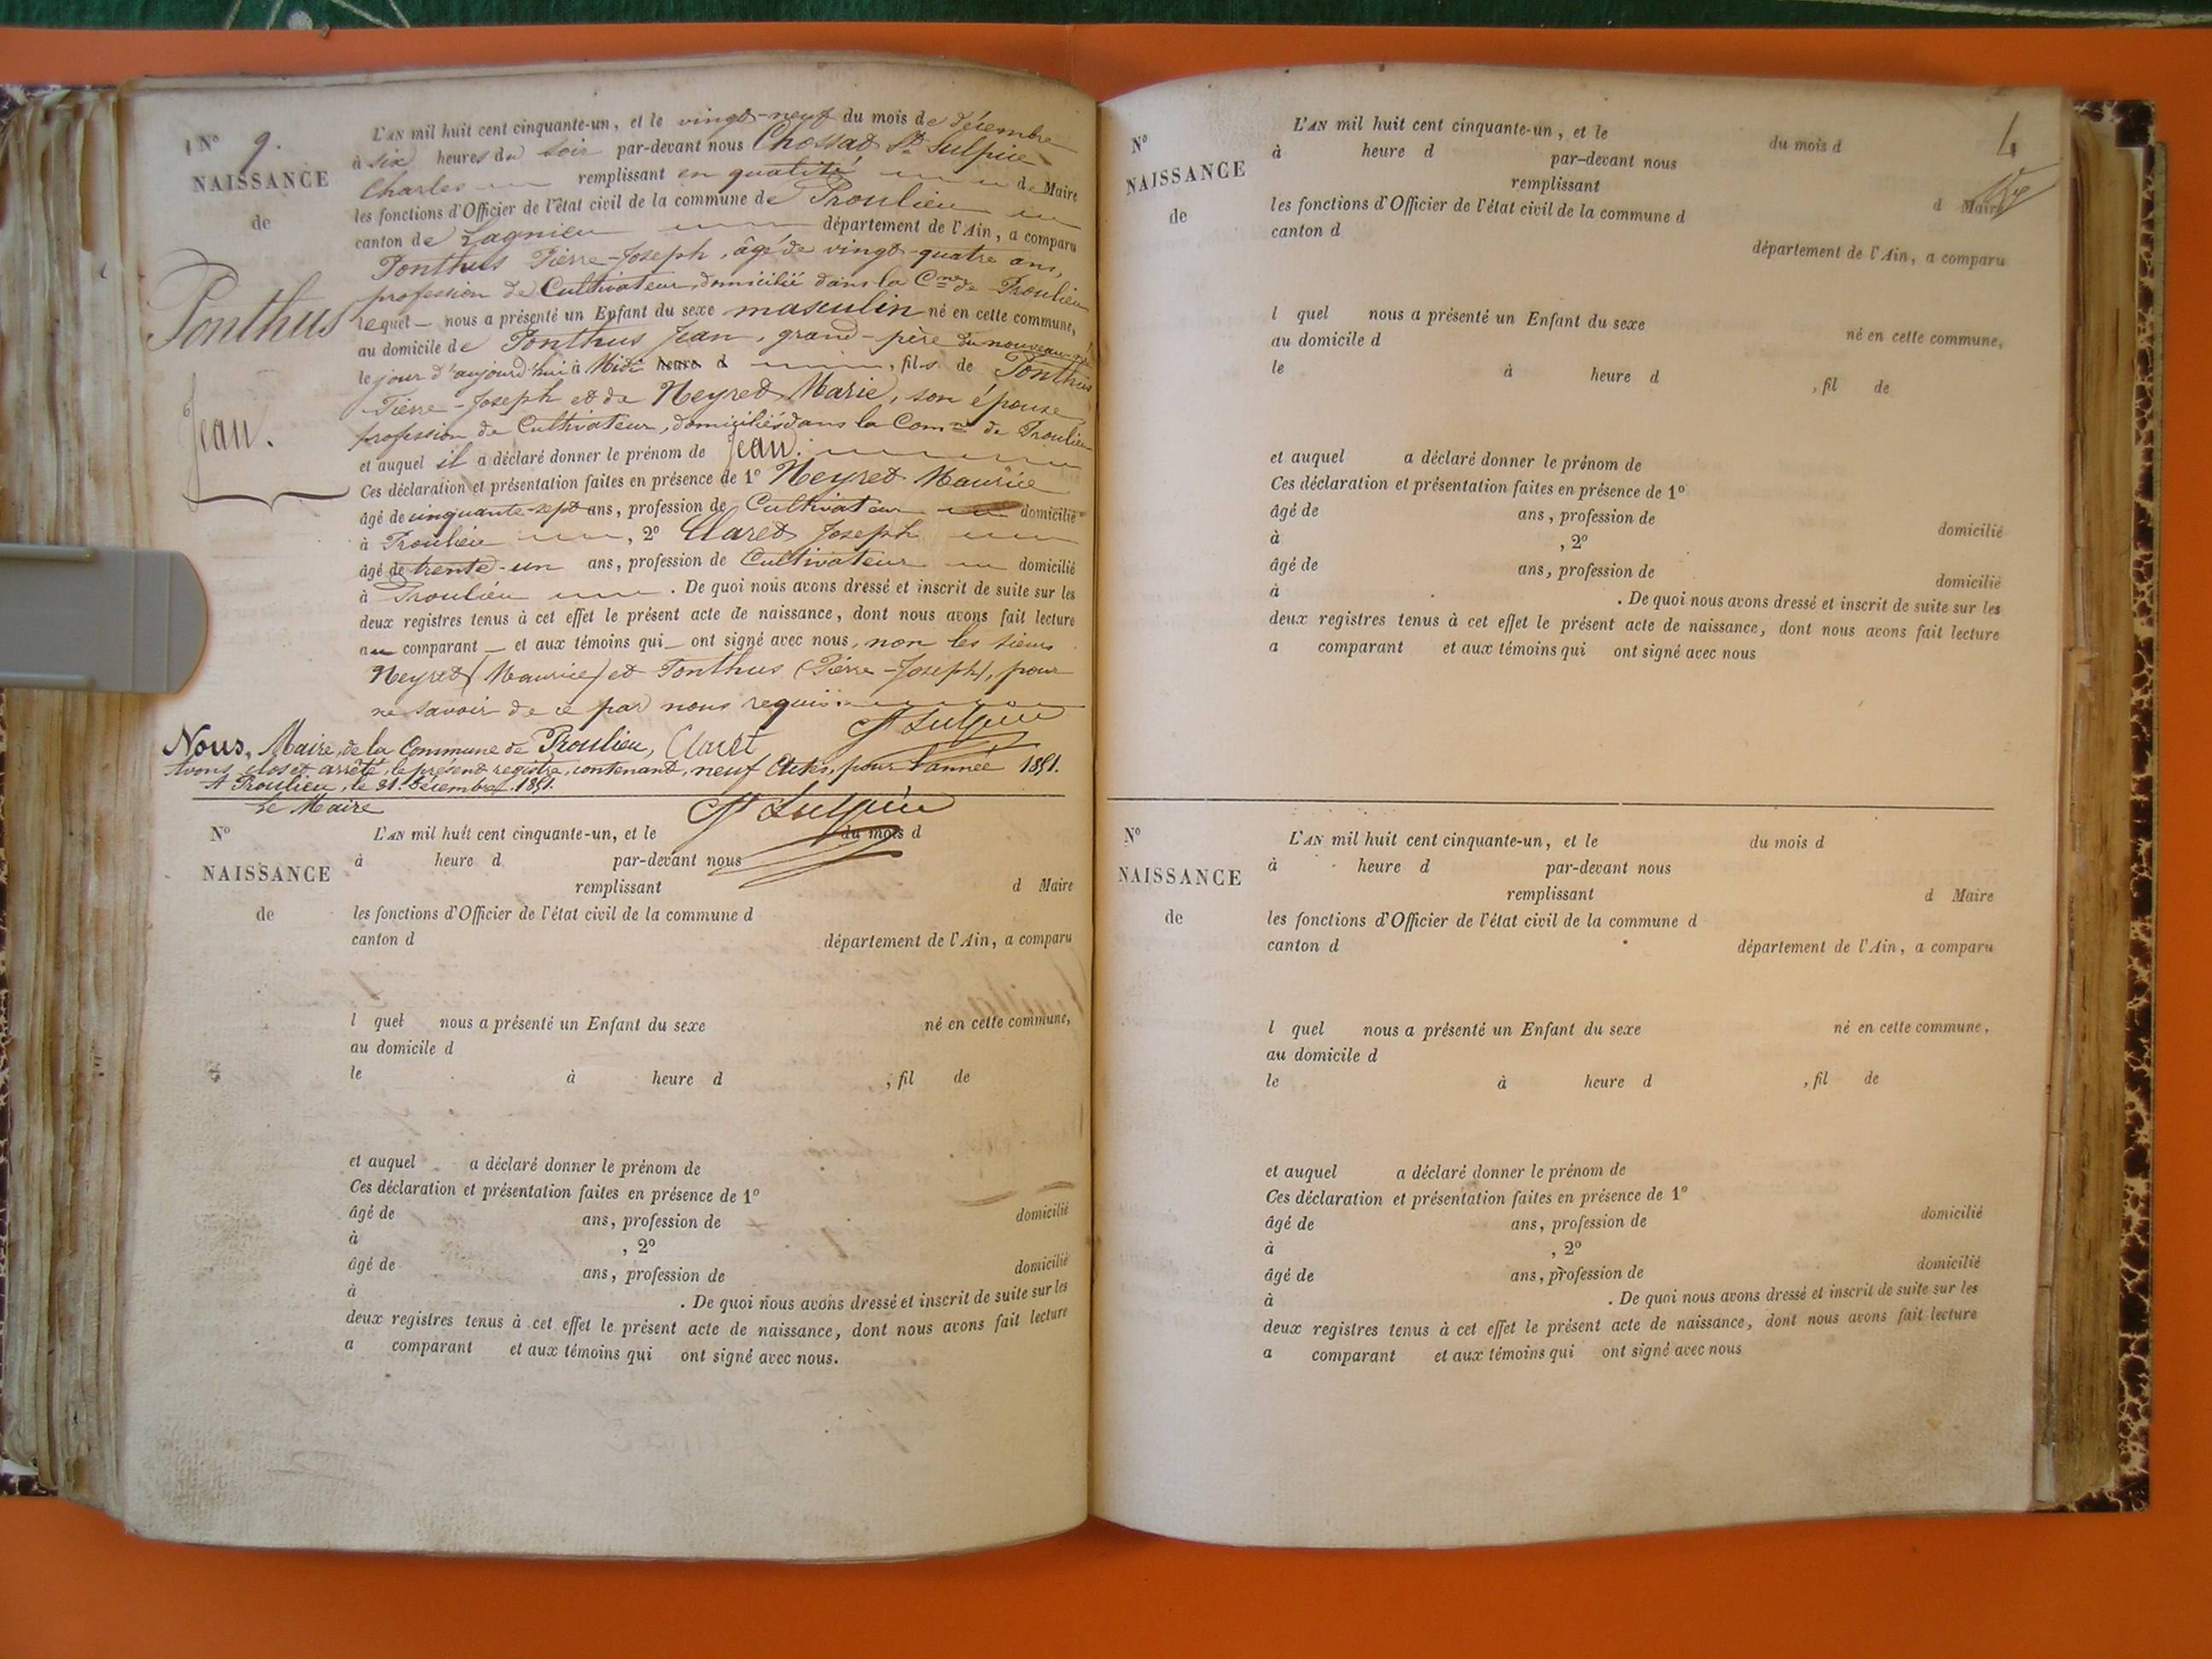 N° 9.
NAISSANCE
de
Ponthus
Jean.
L'AN mil huit cent cinquante-un, et le vingt-neuf du mois de décembre
à six heures du soir par-devant nous Chossat St. Sulpice
Charles remplissant en qualité de Maire
les fonctions d'Officier de l'état civil de la commune de Proulieu
canton de Lagnieu département de l'Ain, a comparu
Ponthus Pierre-Joseph, âgé de vingt-quatre ans,
profession de Cultivateur, domicilié dans la Cne de Proulieu
lequel nous a présenté un Enfant du sexe masculin né en cette commune,
au domicile de Ponthus Jean, grand-père du nouveau-né
le jour d'aujourd'hui à Midi heure d , fils de Ponthus
Pierre-Joseph et de Neyret Marie, son épouse
profession de Cultivateur, domiciliés dans la Comne de Proulieu
et auquel il a déclaré donner le prénom de Jean.
Ces déclaration et présentation faites en présence de 1° Neyret Maurice
âgé de cinquante-sept ans, profession de Cultivateur domicilié
à Proulieu , 2° Claret Joseph
âgé de trente-un ans, profession de Cultivateur domicilié
à Proulieu . De quoi nous avons dressé et inscrit de suite sur les
deux registres tenus à cet effet le présent acte de naissance, dont nous avons fait lecture
au comparant et aux témoins qui ont signé avec nous, non les sieurs
Neyret (Maurice) et Ponthus (Pierre-Joseph), pour
ne savoir de ce par nous requis.
St Sulpice
Nous, Maire de la Commune de Proulieu, Claret
Avons clos et arrêté, le présent registre, contenant, neuf Actes, pour l'année 1851.
A Proulieu, le 31 décembre 1851.
Le Maire
St Sulpice
N°
NAISSANCE
de
L'AN mil huit cent cinquante-un, et le du mois d
à heure d par-devant nous
remplissant d Maire
les fonctions d'Officier de l'état civil de la commune d
canton d département de l'Ain, a comparu
l quel nous a présenté un Enfant du sexe né en cette commune,
au domicile d
le à heure d , fil de
et auquel a déclaré donner le prénom de
Ces déclaration et présentation faites en présence de 1°
âgé de ans, profession de domicilié
à , 2°
âgé de ans, profession de domicilié
à . De quoi nous avons dressé et inscrit de suite sur les
deux registres tenus à cet effet le présent acte de naissance, dont nous avons fait lecture
a comparant et aux témoins qui ont signé avec nous.
4
N°
NAISSANCE
de
L'AN mil huit cent cinquante-un, et le du mois d
à heure d par-devant nous
remplissant d Maire
les fonctions d'Officier de l'état civil de la commune d
canton d département de l'Ain, a comparu
l quel nous a présenté un Enfant du sexe né en cette commune,
au domicile d
le à heure d , fil de
et auquel a déclaré donner le prénom de
Ces déclaration et présentation faites en présence de 1°
âgé de ans, profession de domicilié
à , 2°
âgé de ans, profession de domicilié
à . De quoi nous avons dressé et inscrit de suite sur les
deux registres tenus à cet effet le présent acte de naissance, dont nous avons fait lecture
a comparant et aux témoins qui ont signé avec nous
N°
NAISSANCE
de
L'AN mil huit cent cinquante-un, et le du mois d
à heure d par-devant nous
remplissant d Maire
les fonctions d'Officier de l'état civil de la commune d
canton d département de l'Ain, a comparu
l quel nous a présenté un Enfant du sexe né en cette commune,
au domicile d
le à heure d , fil de
et auquel a déclaré donner le prénom de
Ces déclaration et présentation faites en présence de 1°
âgé de ans, profession de domicilié
à , 2°
âgé de ans, profession de domicilié
à . De quoi nous avons dressé et inscrit de suite sur les
deux registres tenus à cet effet le présent acte de naissance, dont nous avons fait lecture
a comparant et aux témoins qui ont signé avec nous